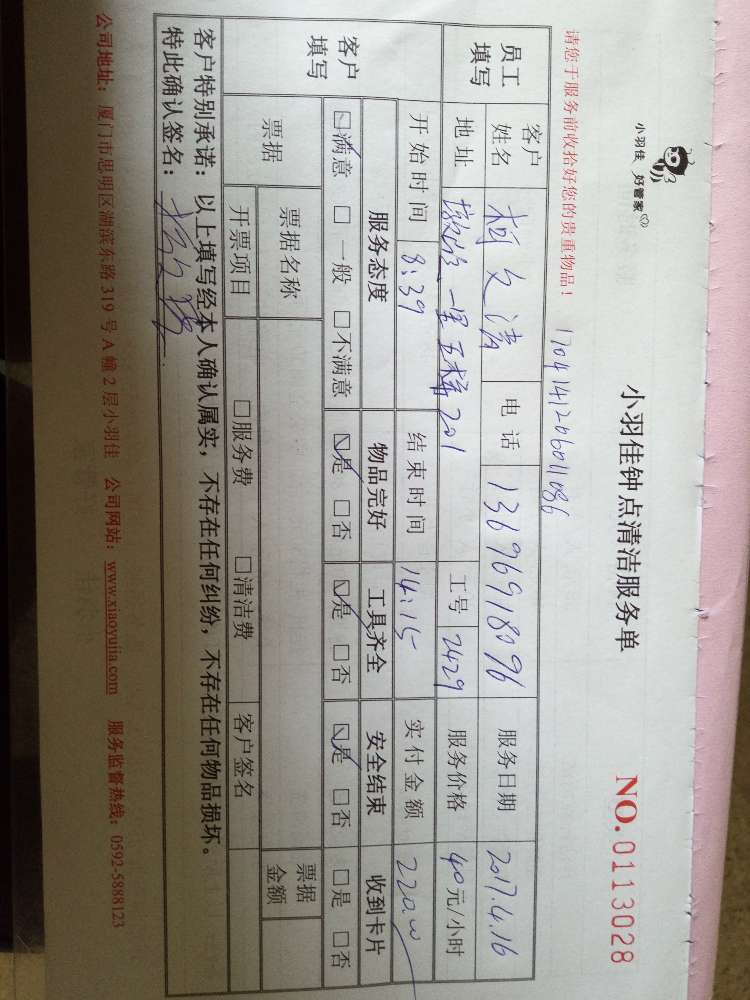 小羽佳 好管家
小羽佳钟点清洁服务单
NO.0113028
请您于服务前收拾好您的贵重物品!
170414120601086
员工填写 客户姓名 柯文清 电话 13696918096 服务日期 2017.4.16
地址 一里 201 工号 2429 服务价格 40元/小时
开始时间 8:39 结束时间 14:15 实付金额 220.00
客户填写 服务态度 物品完好 工具齐全 安全结束 收到卡片
☑满意 □一般 □不满意 ☑是 □否 ☑是 □否 ☑是 □否 □是 □否
票据 票据名称 票据金额
开票项目 □服务费 □清洁费 客户签名
客户特别承诺:以上填写经本人确认属实,不存在任何纠纷,不存在任何物品损坏。
特此确认签名:
公司地址:厦门市思明区湖滨东路319号A幢2层小羽佳 公司网站:www.xiaoyujia.com 服务监督热线:0592-5888123